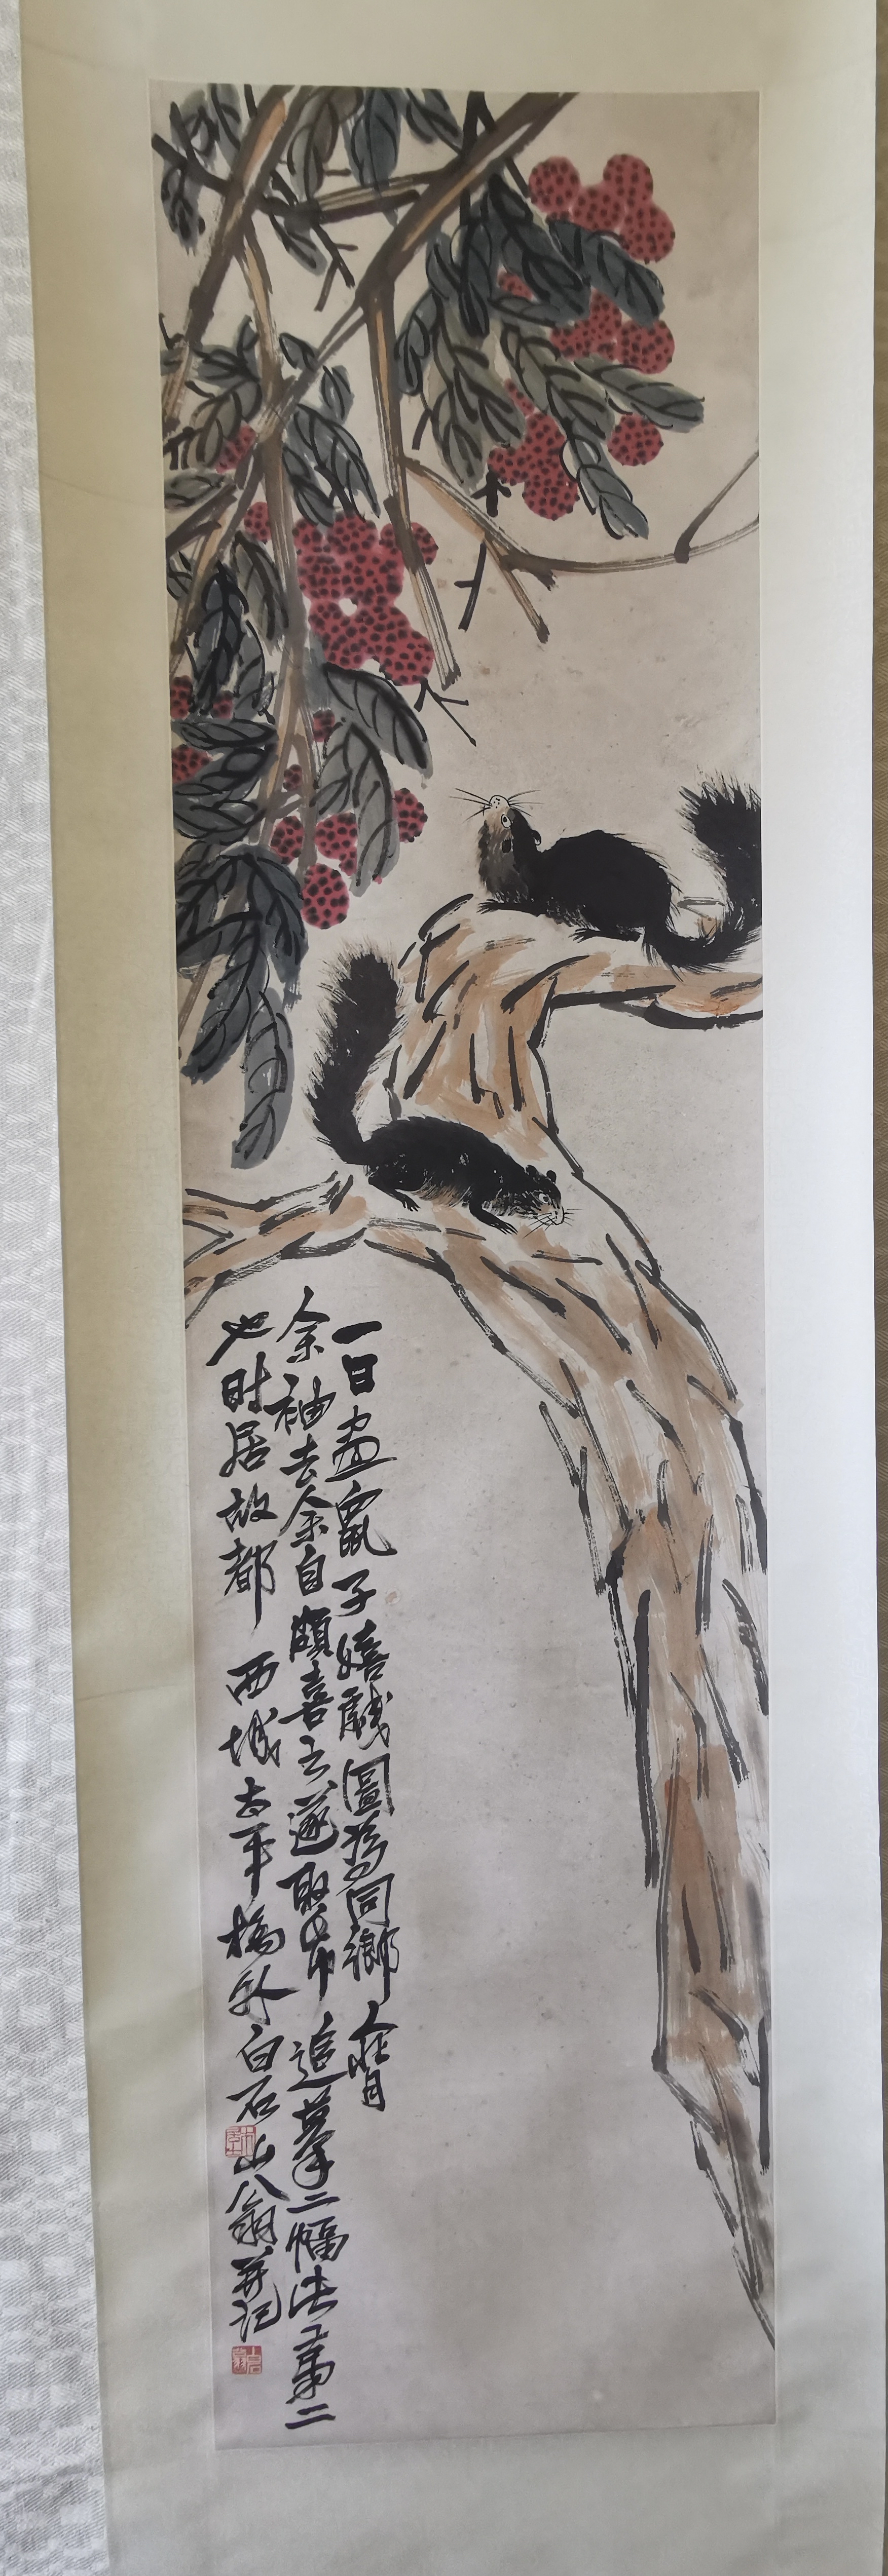 一日畫鼠子嬉戲圖為同鄉人背
余袖去余自頗喜之遂取帋追摹二幅此第二
也時居故都西城太平橋外白石山翁并記